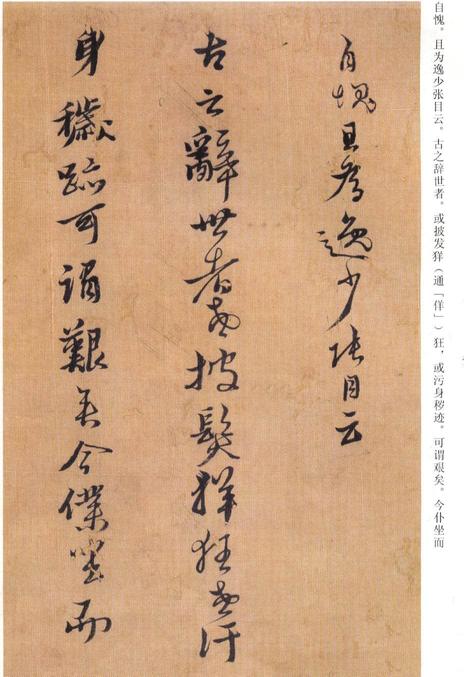 自愧。且为逸少张目云。古之辞世者。或披发徉(通「佯」)狂，或污身秽迹。可谓艰矣。今仆坐而
自愧且為逸少張目云
古之辭世者或披髮徉狂或汙
身穢跡可謂艱矣今僕坐而